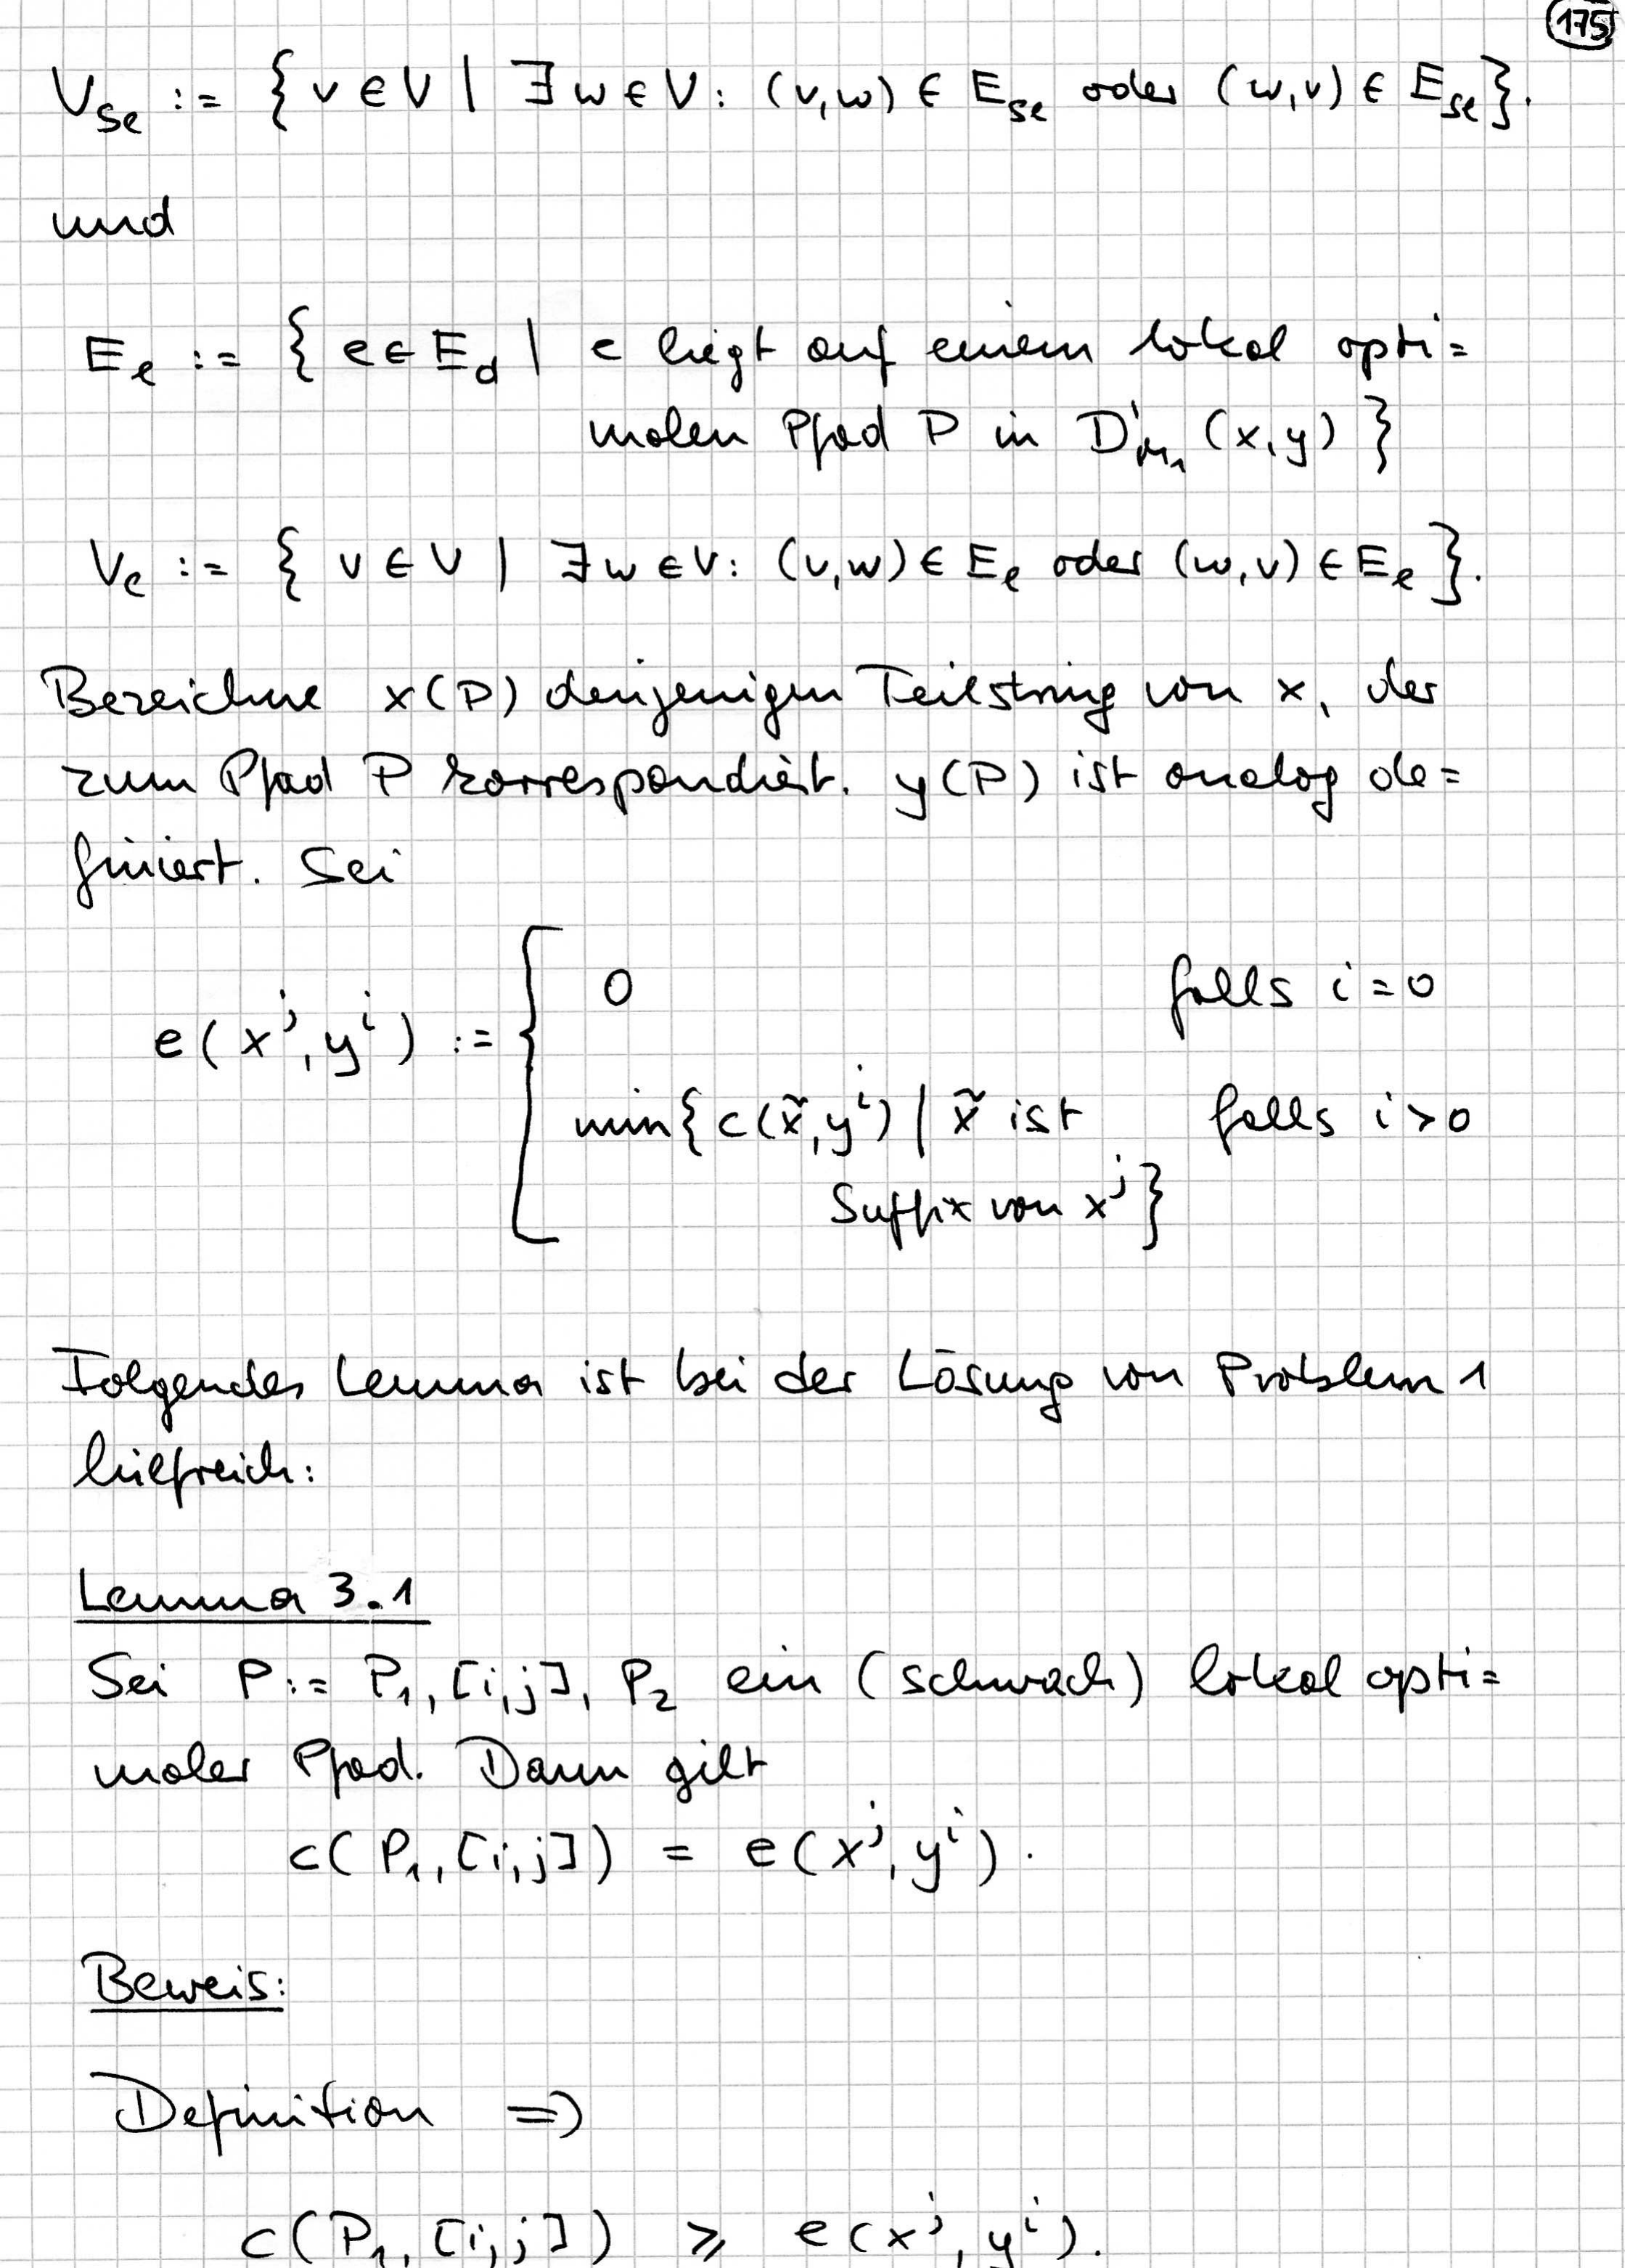 175
V_se := { v ∈ V | ∃ w ∈ V : (v,w) ∈ E_se oder (w,v) ∈ E_se }.
und
E_e := { e ∈ E_d | e liegt auf einem lokal opti=
malen Pfad P in D'_M1 (x,y) }
V_e := { v ∈ V | ∃ w ∈ V : (v,w) ∈ E_e oder (w,v) ∈ E_e }.
Bezeichne x(P) denjenigen Teilstring von x, der
zum Pfad P korrespondiert. y(P) ist analog de=
finiert. Sei
0 falls i = 0
e(x^j, y^i) :=
min{ c(x̃, y^i) | x̃ ist falls i > 0
Suffix von x^j }
Folgendes Lemma ist bei der Lösung von Problem 1
hilfreich:
Lemma 3.1
Sei P := P_1, [i,j], P_2 ein (schwach) lokal opti=
maler Pfad. Dann gilt
c(P_1, [i,j]) = e(x^j, y^i).
Beweis:
Definition ⇒
c(P_1, [i,j]) ≥ e(x^j, y^i).